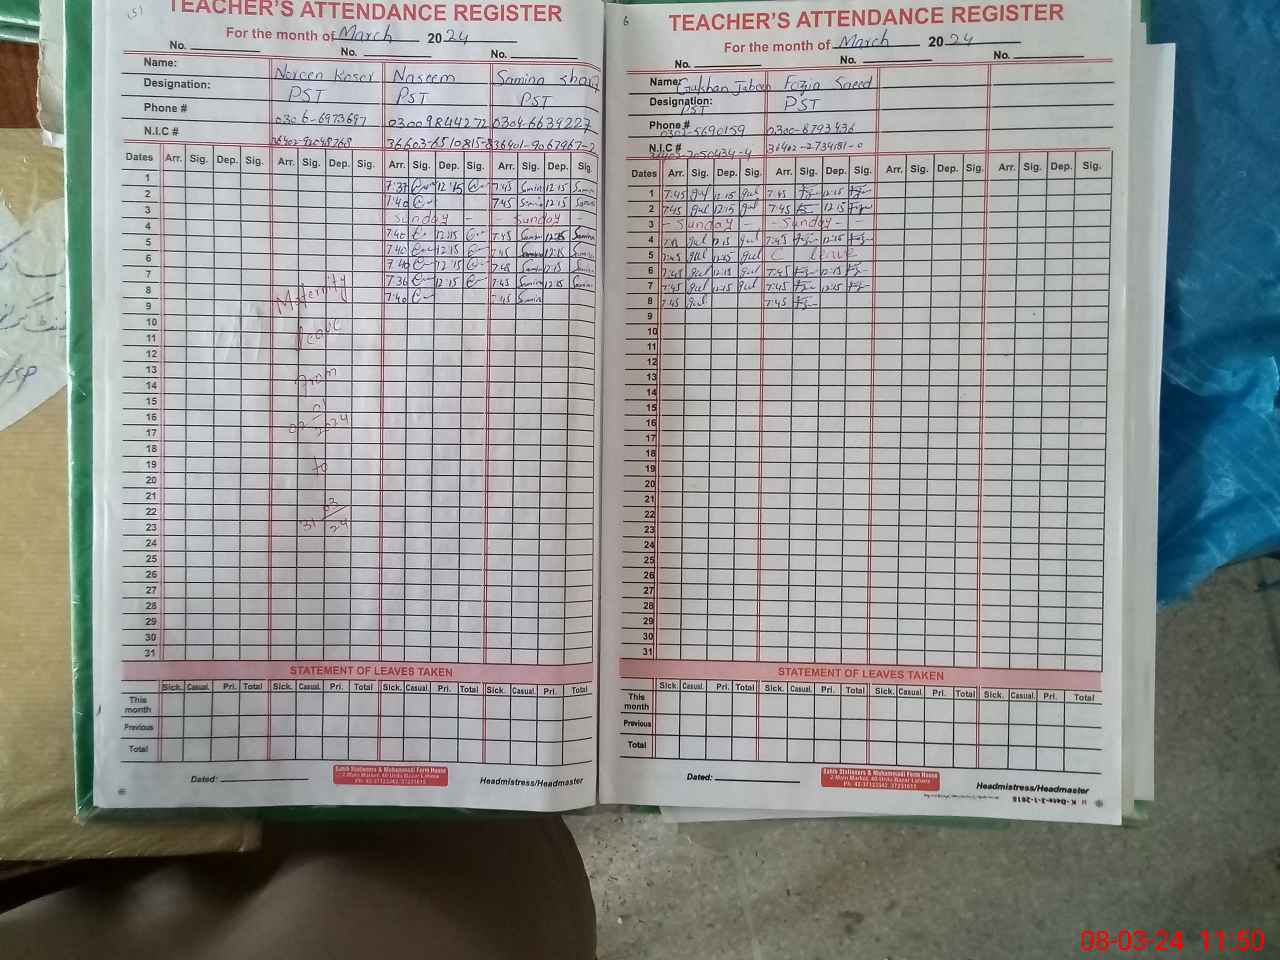 TEACHER'S ATTENDANCE REGISTER
For the month of March 2024
No. No. No.
Name: Noreen Koser Naseem Samina
Designation: PST PST PST
Phone # 0306-6973697 03009844272 0304-6639227
N.I.C #
Dates Arr. Sig. Dep. Sig. Arr. Sig. Dep. Sig. Arr. Sig. Dep. Sig. Arr. Sig. Dep. Sig.
1 7:37 12:15 7:45 12:15
2 7:40 7:45 12:15
3 Sunday - - Sunday -
4 7:40 12:15 7:45 12:15
5 7:40 12:15 7:45 12:15
6 7:40 12:15 7:45 12:15
7 7:36 12:15 7:45 12:15
8 7:40 7:45
9
10
11
12
13
14
15
16
17
18
19
20
21
22
23
24
25
26
27
28
29
30
31
Maternity
leave
from
to
31 03/24
STATEMENT OF LEAVES TAKEN
Sick. Casual. Pri. Total Sick. Casual. Pri. Total Sick. Casual. Pri. Total Sick. Casual. Pri. Total
This month
Previous
Total
Dated: Headmistress/Headmaster
Sahib Stationers & Muhammadi Form House
2 Main Market, 60 Urdu Bazar Lahore
6
TEACHER'S ATTENDANCE REGISTER
For the month of March 2024
No. No. No.
Name: Gulshan Jabeen Fozia Saeed
Designation: PST PST
Phone # 0300-8793436
N.I.C # 36402-2734181-0
Dates Arr. Sig. Dep. Sig. Arr. Sig. Dep. Sig. Arr. Sig. Dep. Sig. Arr. Sig. Dep. Sig.
1 7:45 gul 12:15 gul 7:45 12:15
2 7:45 gul 12:15 gul 7:45 12:15
3 - Sunday - - Sunday - -
4 gul 12:15 gul 7:45 12:15
5 7:45 gul 12:15 gul C leave
6 7:45 gul 12:15 gul 7:45 12:15
7 7:45 gul 12:15 gul 7:45 12:15
8 7:45 gul 7:45
9
10
11
12
13
14
15
16
17
18
19
20
21
22
23
24
25
26
27
28
29
30
31
STATEMENT OF LEAVES TAKEN
Sick. Casual. Pri. Total Sick. Casual. Pri. Total Sick. Casual. Pri. Total Sick. Casual. Pri. Total
This month
Previous
Total
Dated: Headmistress/Headmaster
Sahib Stationers & Muhammadi Form House
2 Main Market, 60 Urdu Bazar Lahore
08-03-24 11:50